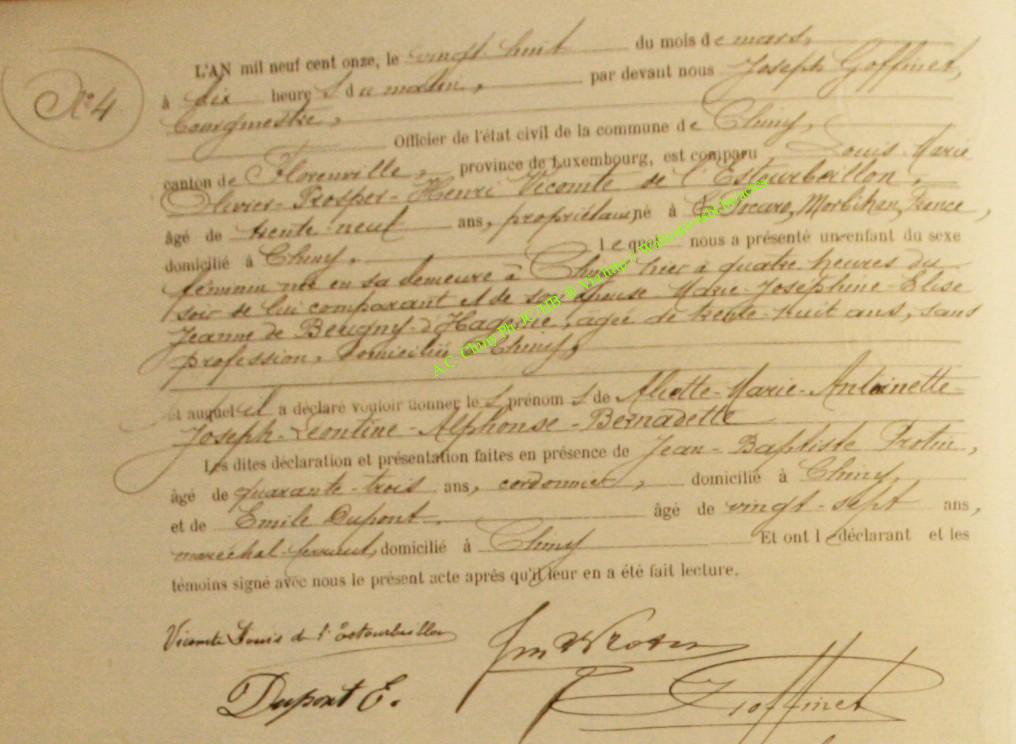 L'AN mil neuf cent onze, le vingt huit du mois de mars,
N° 4
à dix heures du matin, par devant nous Joseph Goffinet,
bourgmestre,
Officier de l'état civil de la commune de Chiny,
canton de Florenville, province de Luxembourg, est comparu Louis-Marie
Olivier-Prosper-Henri Vicomte de l'Estourbeillon,
âgé de trente neuf ans, propriétaire né à Morbihan, France,
domicilié à Chiny. Lequel nous a présenté un enfant du sexe
féminin né en sa demeure à Chiny hier à quatre heures du
soir de lui comparant et de son épouse Marie-Joséphine-Elise
Jeanne de Beugny-d'Hagerue, agée de trente-huit ans, sans
profession, domiciliée à Chiny,
et auquel il a déclaré vouloir donner les prénoms de Aliette-Marie-Antoinette-
Joseph-Léontine-Alphonse-Bernadette
Les dites déclaration et présentation faites en présence de Jean-Baptiste Protin,
âgé de quarante-trois ans, cordonnier, domicilié à Chiny,
et de Emile Dupont, âgé de vingt-sept ans,
maréchal-ferrant, domicilié à Chiny Et ont l déclarant et les
témoins signé avec nous le présent acte après qu'il leur en a été fait lecture.
Vicomte Louis de l'Estourbeillon
Dupont E.
Goffinet